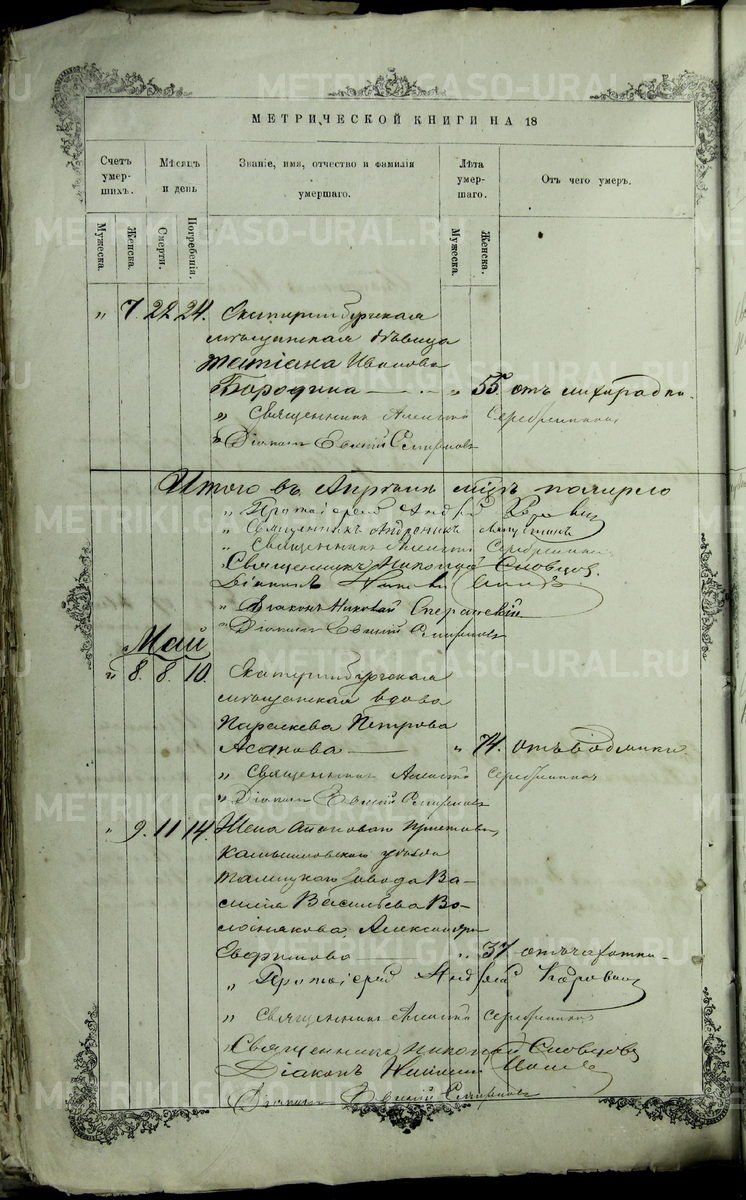 МЕТРИЧЕСКОЙ КНИГИ НА 18
Счетъ умер- шихъ.
Мѣсяцъ и день
Званіе, имя, отчество и фамилія умершаго.
Лѣта умер- шаго.
Отъ чего умеръ.
Мужеска.
Женска.
Смерти.
Погребенія.
Мужеска.
Женска.
„ 7. 22 24. Екатеринбургская
мѣщанская дѣвица
Татіана Иванова
Бородина — „ 55 отъ лихорадки.
„ Священникъ Алексѣй Серебренниковъ
„ Діаконъ Евгеній Смирновъ
Итого въ Апрѣлѣ мцѣ померло
„ Протоіерей Андрей
„ Священникъ Андроникъ
„ Священникъ Алексѣй Серебренниковъ
„ Священникъ Николай Словцовъ
Діаконъ
„ Діаконъ Николай Сперанскій
„ Діаконъ Евгеній Смирновъ
Май
„ 8. 8. 10. Екатеринбургская
мѣщанская вдова
Параскева Петрова
Асанова — „ 74. отъ водянки
„ Священникъ Алексѣй Серебренниковъ
„ Діаконъ Евгеній Смирновъ
„ 9. 11 14. Жена Становаго Пристава
Камышловскаго уѣзда
Талицкаго завода Ва-
силія Васильева Во-
Александра
Ефимова — „ 37. отъ чахотки
„ Протоіерей Андрей
„ Священникъ Алексѣй Серебренниковъ
„ Священникъ Николай Словцовъ
Діаконъ
Діаконъ Евгеній Смирновъ
METRIKI.GASO-URAL.RU